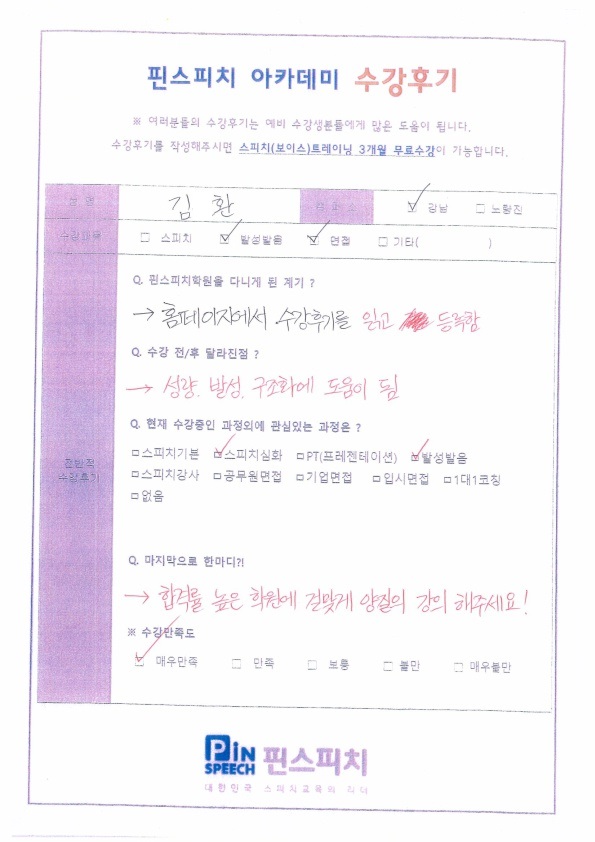 핀스피치 아카데미 수강후기
※ 여러분들의 수강후기는 예비 수강생분들에게 많은 도움이 됩니다.
수강후기를 작성해주시면 스피치(보이스)트레이닝 3개월 무료수강이 가능합니다.
성 명 김 환 캠퍼스 ☑ 강남 □ 노량진
수강과목 □ 스피치 ☑ 발성발음 ☑ 면접 □ 기타( )
Q. 핀스피치학원을 다니게 된 계기 ?
→ 홈페이지에서 수강후기를 읽고 등록함
Q. 수강 전/후 달라진점 ?
→ 성량, 발성, 구조화에 도움이 됨
Q. 현재 수강중인 과정외에 관심있는 과정은 ?
□스피치기본 ☑스피치심화 □PT(프레젠테이션) ☑발성발음
전반적
수강후기
□스피치강사 □공무원면접 □기업면접 □입시면접 □1대1코칭
□없음
Q. 마지막으로 한마디?!
→ 합격률 높은 학원에 걸맞게 양질의 강의 해주세요!
※ 수강만족도
☑ 매우만족 □ 만족 □ 보통 □ 불만 □ 매우불만
PiN SPEECH 핀스피치
대한민국 스피치교육의 리더